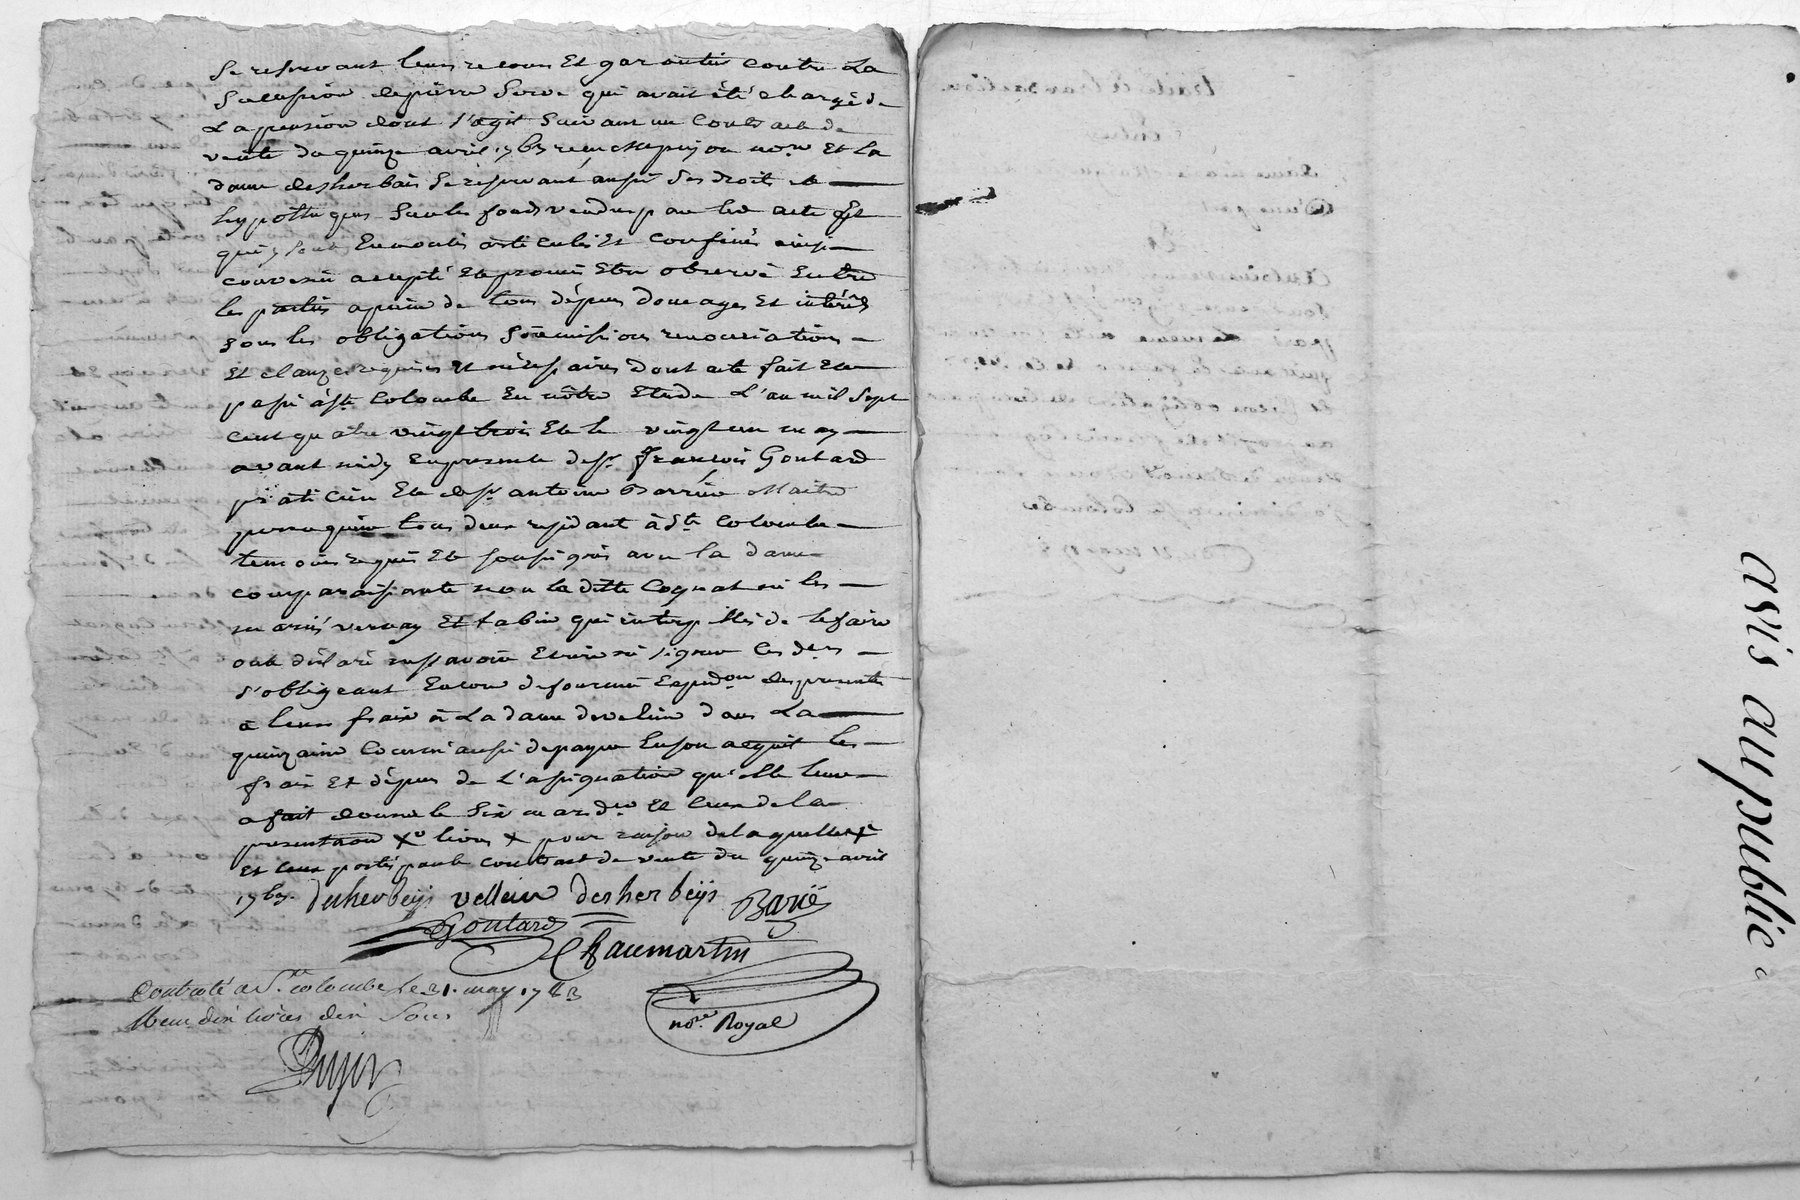 se reservant leurs recours Et garanties contre La
Succession de pierre Serve qui avait été chargé de
La pension dont s'agit Suivant un Contract de
vente du quinze avril 1763 recu no.re Et la
dame desherbais se réservant aussi ses droits et
hypotteques Sur les fonds vendus par led acte Et
qui y sont Enoncés articulés Et confinés ainsi
convenu accepté Et promis Etre observé Entre
les parties a peine de tous dépens domages Et intérêts
sous les obligations soumissions renonciations
Et clauzes requises Et nécessaires dont acte fait Et
passé à Ste Colombe En nôtre Etude L'an mil Sept
Cent quatre vingt trois Et le vingt un may
avant midy En presence de sr. françois Goutard
praticien Et de sr antoine Barrier Maitre
perruquier tous deux residant à Ste Colombe
temoins requis Et soussignés avec la dame
comparaissante non la ditte Cognat ni les
mariés vernay Et tabin qui interpellés de le faire
ont déclaré ne savoir Ecrire ni signer les d.ers
s'obligeant Encore de fournir Expedon des presentes
à leurs fraix à La dame de velein dans La
quinzaine Comm'aussi de payer En son acquit les
frais Et dépens de L'assignation qu'elle leur
a fait donner le Six mars d.er Et Ceux de la
presentation x livres x pour raison de laquelle x
Et Ceux portés par le Contract de vente du quinze avril
1763. desherbeÿs vellein desherbeÿs Barié
Goutard
Chaumartin
no.re Royal
Controlé a Ste. colombe Le 31. may 1783
Reçu dix livres dix Sous
avis au public